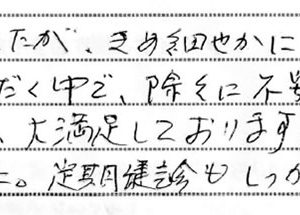 たが、きめ細やかに
だく中で、除々に不
、大満足しております
た。定期健診もしっか